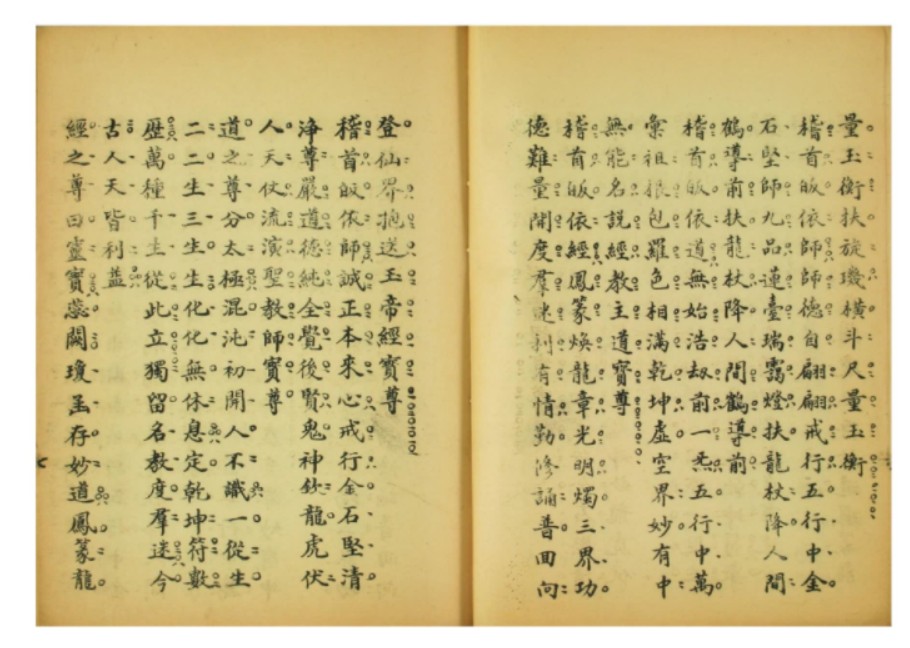 量玉衡扶旋璣橫斗尺量玉衡
稽首皈依師師德自翩翩戒行五行中金
石堅師九品蓮臺瑞靄燈扶龍杖降人間
鶴導前扶龍杖降人間鶴導前
稽首皈依道無始浩劫前一炁五行中萬
彙祖根包羅色相滿乾坤虛空界妙有中
無能名説經教主道寶尊
稽首皈依經鳳篆煥龍章光明燭三界功
德難量開度羣迷利有情勤修誦普回向
登仙界抱送玉帝經寶尊
稽首皈依師誠正本來心戒行金石堅清
淨尊嚴道德純全覺後賢鬼神欽龍虎伏
人天仗流演聖教師寶尊
道之尊分太極混沌初開人不識一從生
二二生三生生化化無休息定乾坤符數
歷萬種千生從此立獨留名教度羣迷今
古人天皆利益
經之尊曰靈寶蕊闕瓊函存妙道鳳篆龍